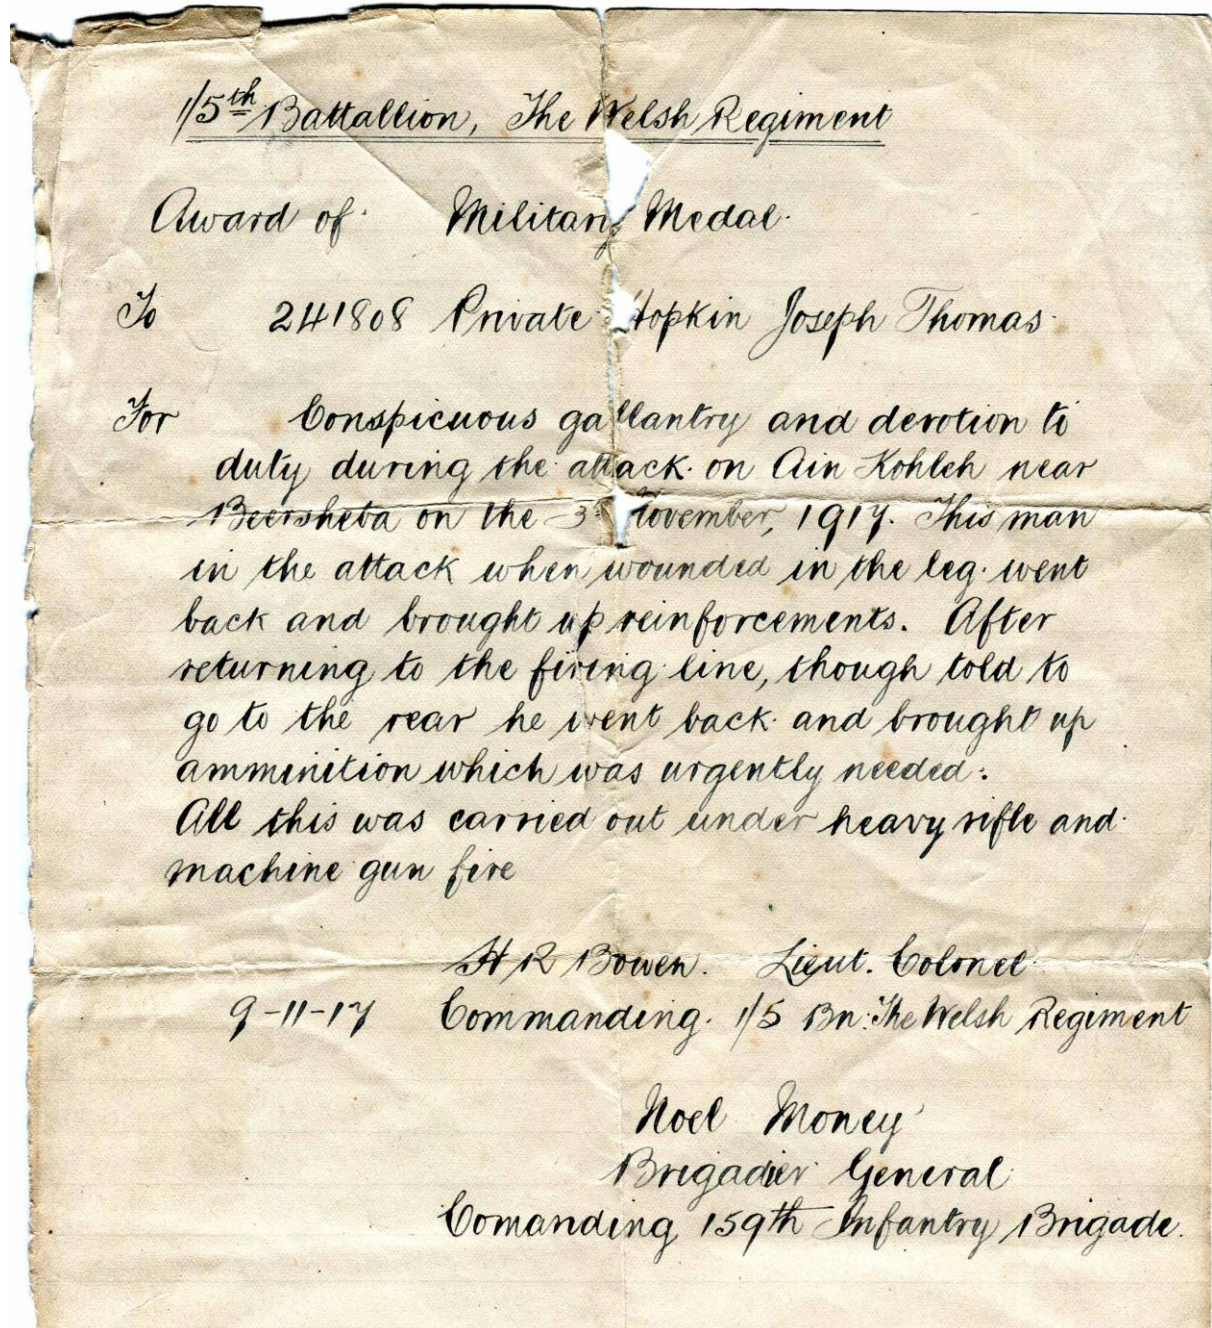 1/5th Battallion, The Welsh Regiment
Award of Military Medal.
To 241808 Private Hopkin Joseph Thomas.
For Conspicuous gallantry and devotion to
duty during the attack on Ain Kohleh near
Beersheba on the 3rd November, 1917. This man
in the attack when wounded in the leg went
back and brought up reinforcements. After
returning to the firing line, though told to
go to the rear he went back and brought up
amminition which was urgently needed.
All this was carried out under heavy rifle and
machine gun fire
H R Bowen. Lieut. Colonel
9-11-17 Commanding. 1/5 Bn: The Welsh Regiment
Noel Money
Brigadier General
Comanding 159th Infantry Brigade.